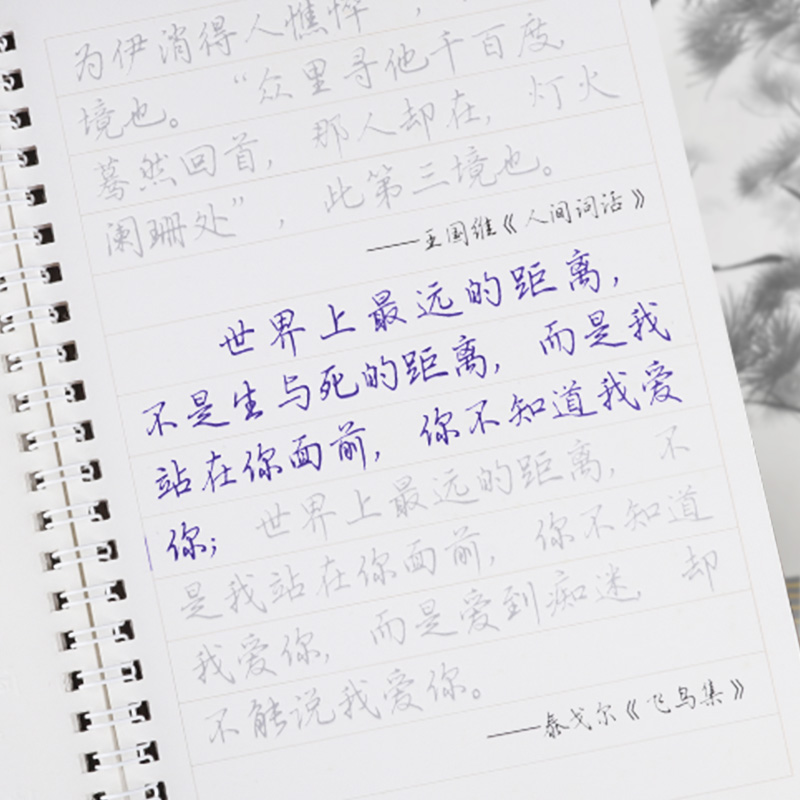 为伊消得人憔悴”，
境也。“众里寻他千百度
蓦然回首，那人却在，灯火
阑珊处”，此第三境也。
——王国维《人间词话》
世界上最远的距离，
不是生与死的距离，而是我
站在你面前，你不知道我爱
你；世界上最远的距离，不
是我站在你面前，你不知道
我爱你，而是爱到痴迷 却
不能说我爱你。
——泰戈尔《飞鸟集》